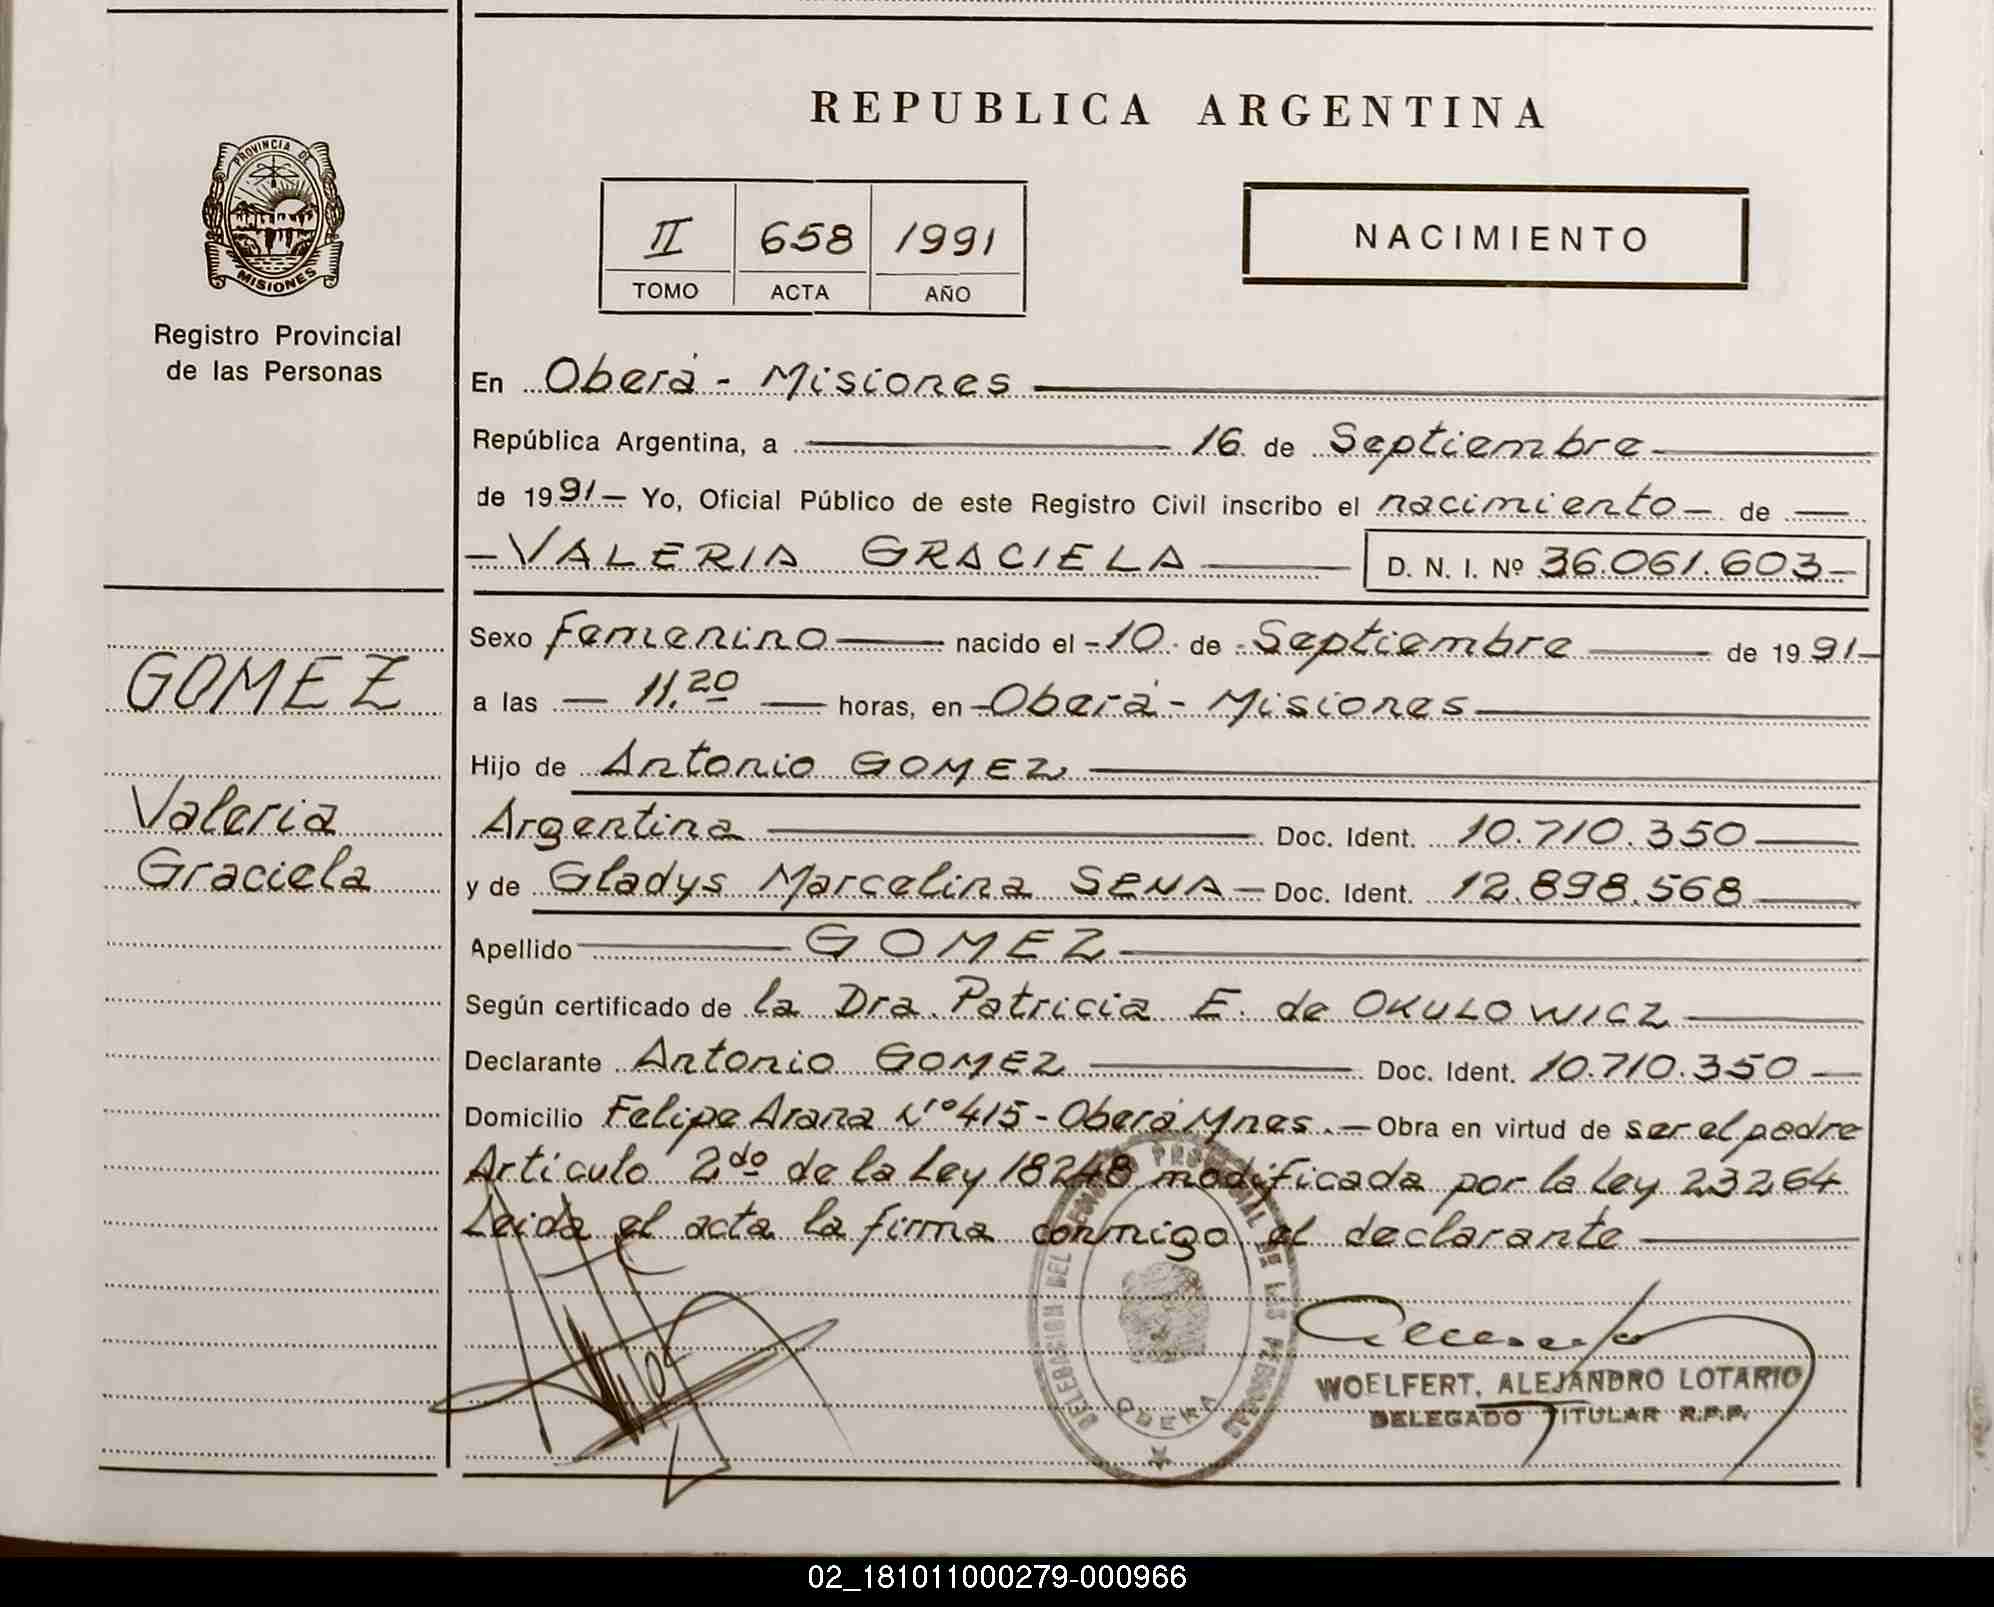 REPUBLICA ARGENTINA
PROVINCIA DE
MISIONES
Registro Provincial
de las Personas
II 658 1991
TOMO ACTA AÑO
NACIMIENTO
En Oberá - Misiones
República Argentina, a 16 de Septiembre
de 1991 - Yo, Oficial Público de este Registro Civil inscribo el nacimiento - de
- VALERIA GRACIELA D. N. I. Nº 36.061.603 -
Sexo femenino nacido el - 10 - de - Septiembre de 1991 -
a las - 11,20 - horas, en - Oberá - Misiones
Hijo de Antonio GOMEZ
Argentina Doc. Ident. 10.710.350
y de Gladys Marcelina SENA - Doc. Ident. 12.898.568
Apellido GOMEZ
Según certificado de la Dra. Patricia E. de OKULOWICZ
Declarante Antonio GOMEZ Doc. Ident. 10.710.350
Domicilio Felipe Arana Nº 415 - Oberá Mnes. - Obra en virtud de ser el padre
Artículo 2do de la Ley 18248 modificada por la Ley 23264
Leida el acta la firma conmigo el declarante
GOMEZ
Valeria
Graciela
DELEGACION DEL REGISTRO PROVINCIAL DE LAS PERSONAS
OBERA
WOELFERT, ALEJANDRO LOTARIO
DELEGADO TITULAR R.P.P.
02_181011000279-000966